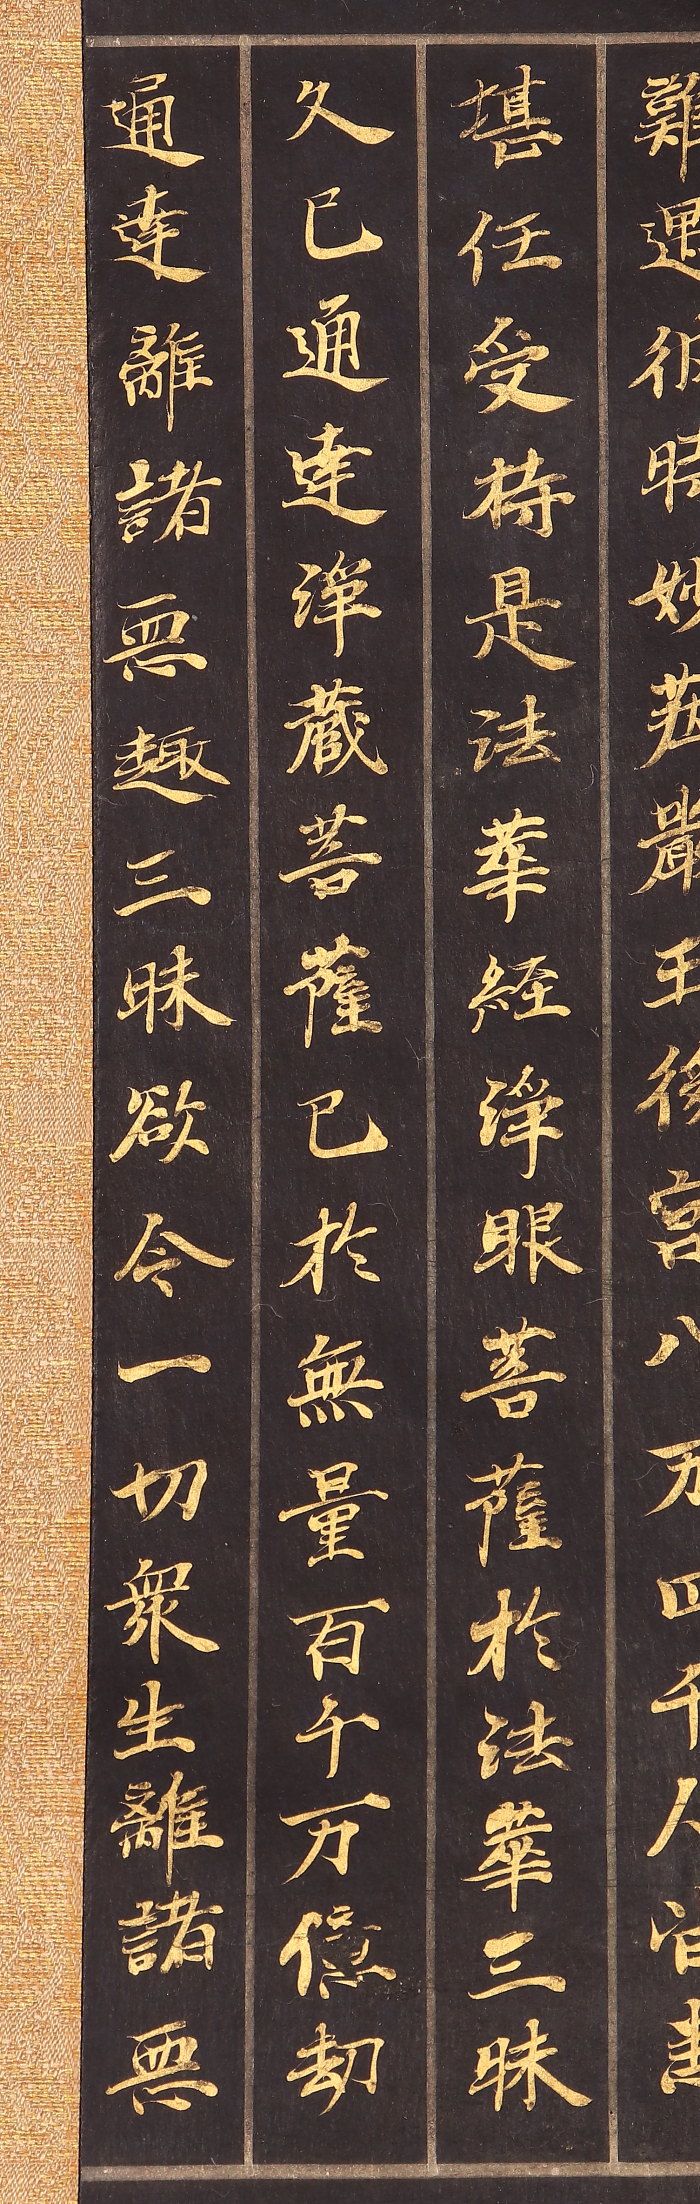 難遇彼時妙莊嚴王後宮八万四千人皆
堪任受持是法華經淨眼菩薩於法華三昧
久已通達淨藏菩薩已於無量百千万億劫
通達離諸惡趣三昧欲令一切衆生離諸惡